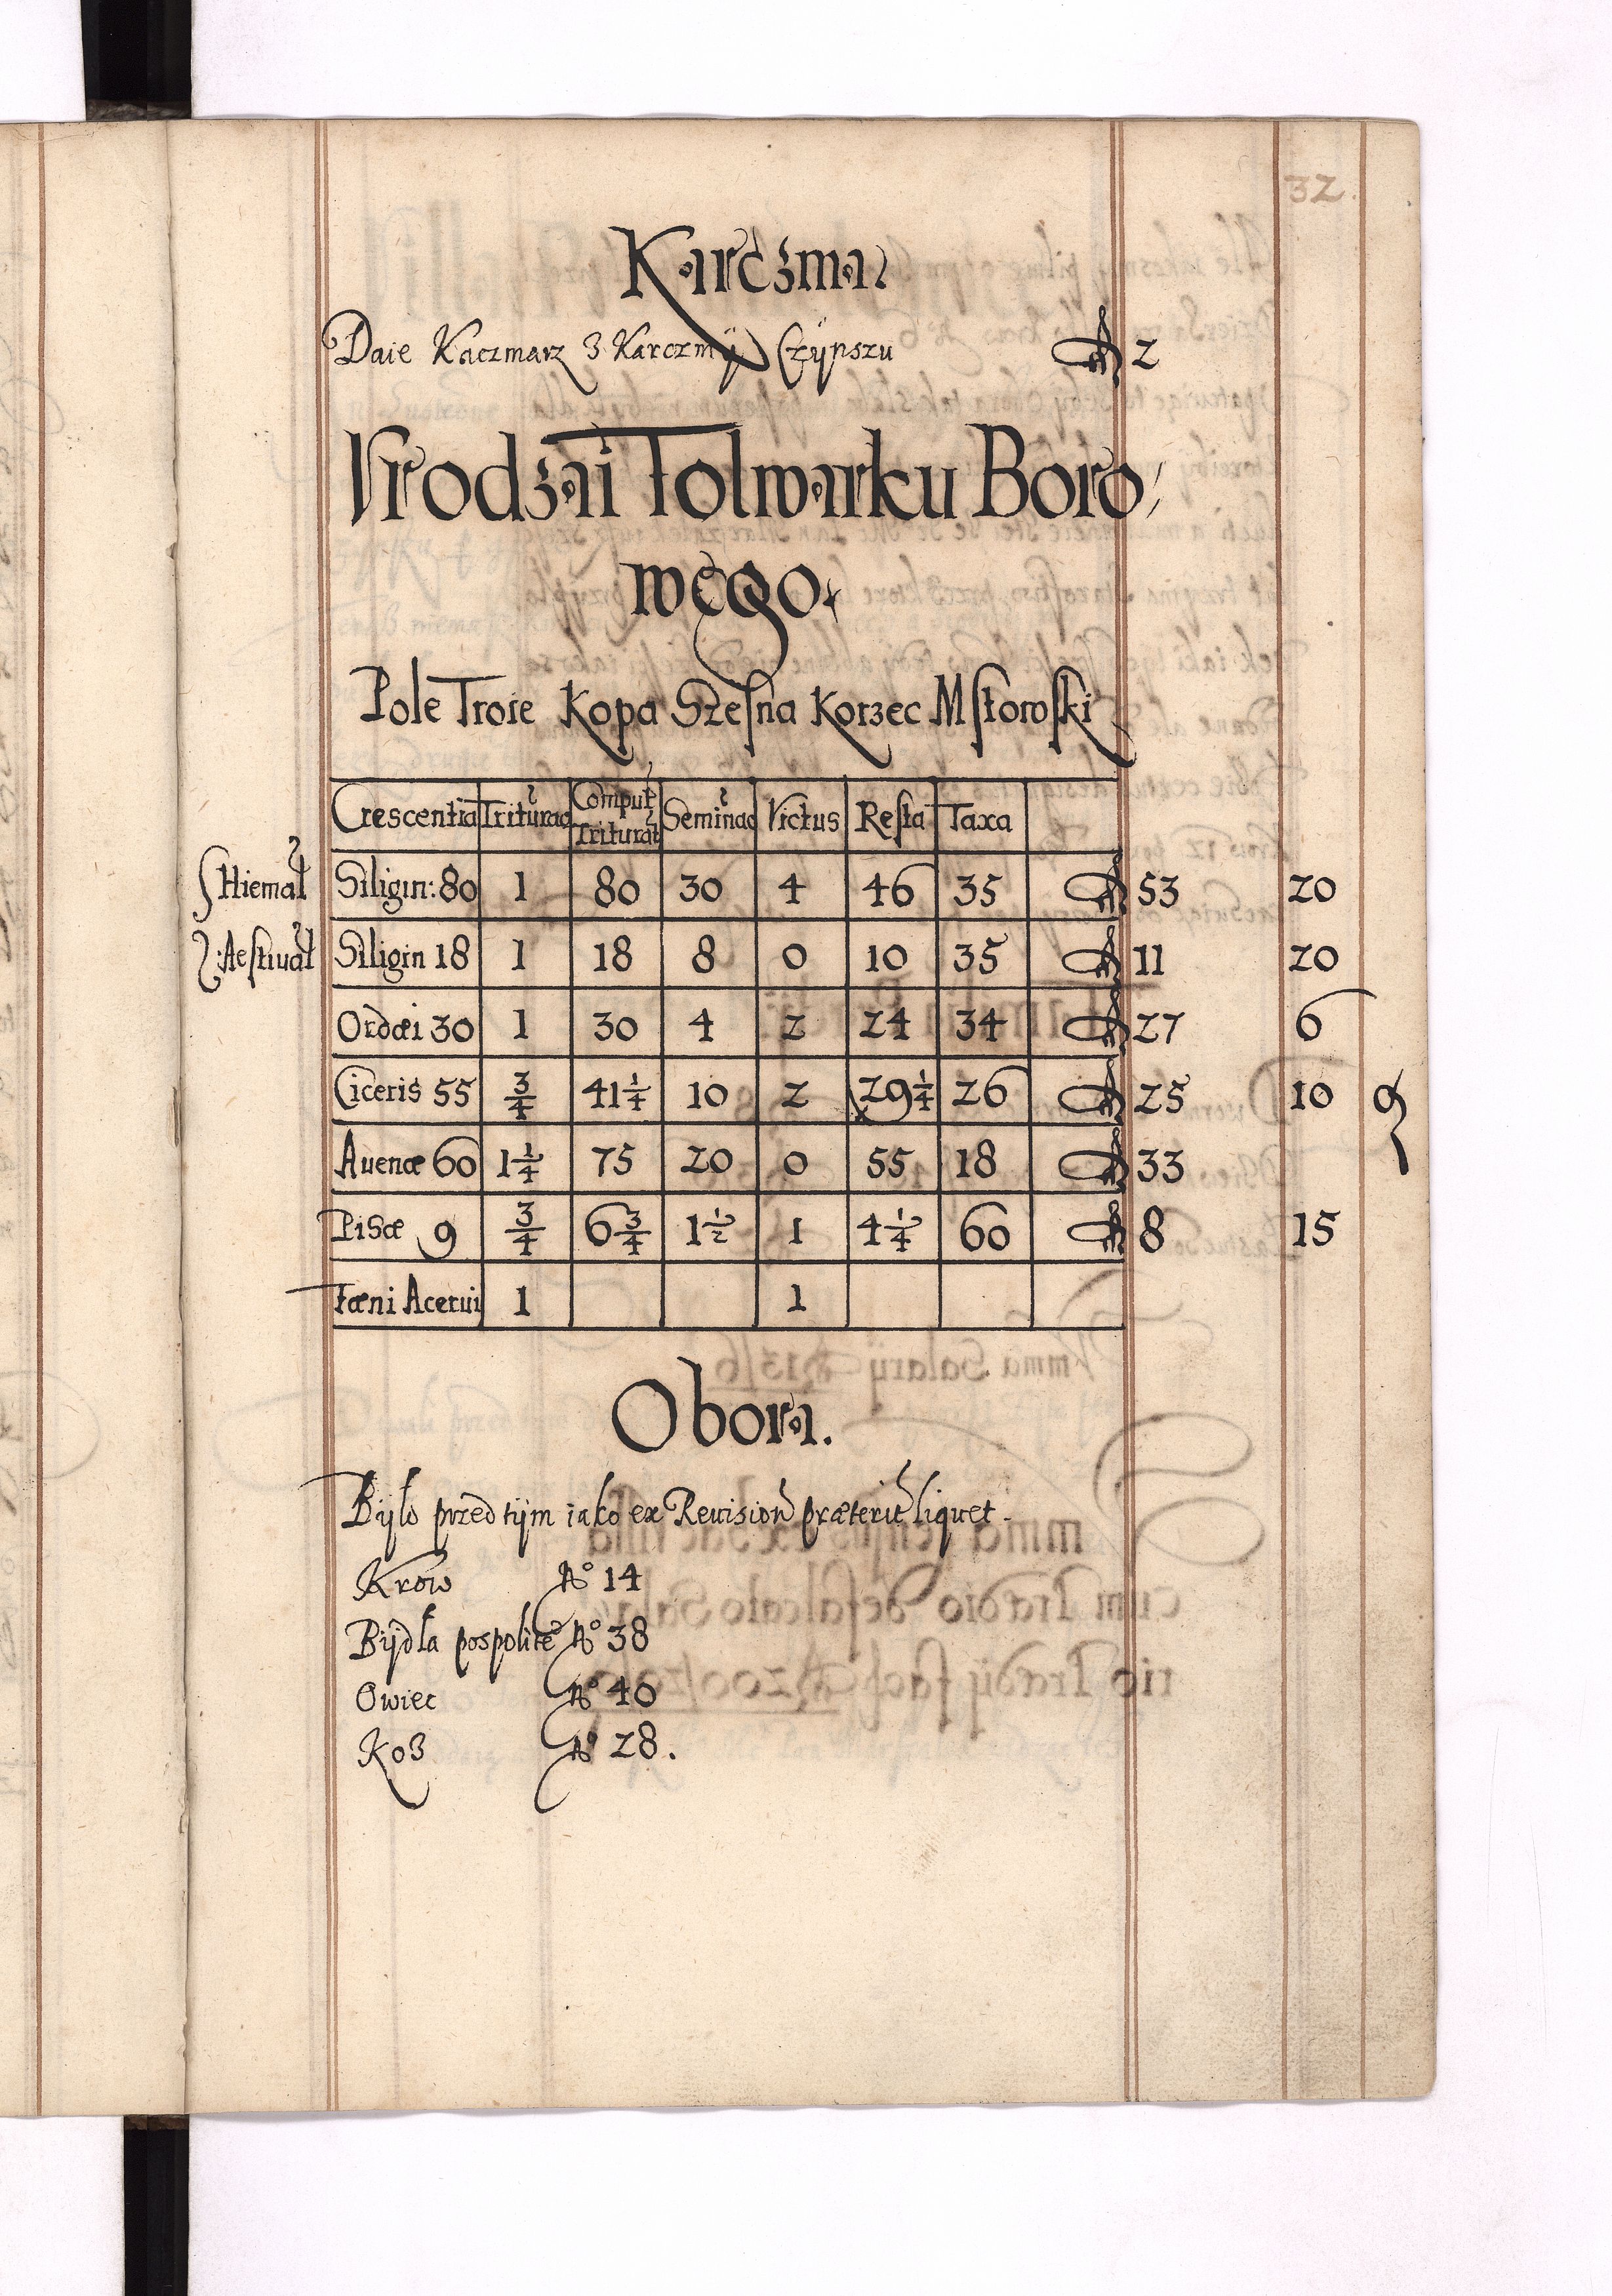 32.
Karczma
Daie Kaczmarz z Karczmÿ Czÿnszu fl 2
Vrodzai Folwarku Boro
wego.
Pole Troie Kopa Szesna Korzec Mstowski
Crescentia Triturao Comput Triturat Seminao Victus Resta Taxa
Hiemal Siligin: 80 1 80 30 4 46 35 fl 53 20
Aestiual Siligin 18 1 18 8 0 10 35 fl 11 20
Ordei 30 1 30 4 2 24 34 fl 27 6
Ciceris 55 3/4 41 1/4 10 2 29 1/4 26 fl 25 10 9
Auenæ 60 1 1/4 75 20 0 55 18 fl 33
Pisæ 9 3/4 6 3/4 1 1/2 1 4 1/4 60 fl 8 15
Fæni Acerui 1 1
Obora.
Bÿlo przed tÿm iako ex Reuision præterit liquet
Krow No 14
Bÿdła pospolite No 38
Owiec No 40
Koz No 28.